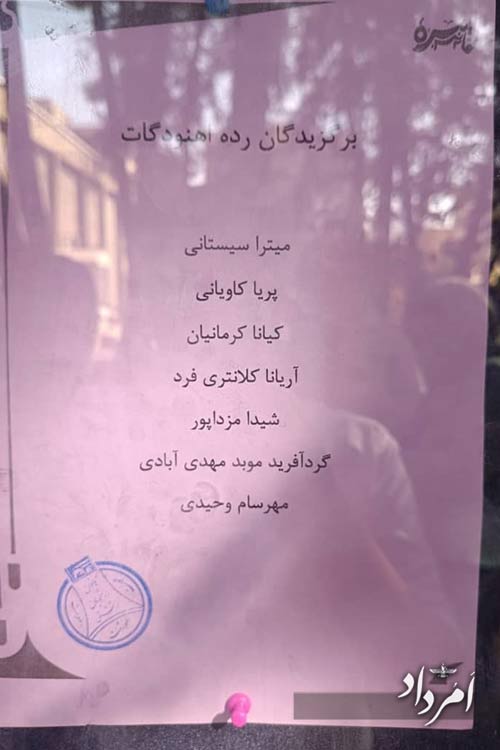 مانتره
برگزیدگان رده اهنودگات
میترا سیستانی
پریا کاویانی
کیانا کرمانیان
آریانا کلانتری فرد
شیدا مزداپور
گردآفرید موبد مهدی آبادی
مهرسام وحیدی
اَمُرداد